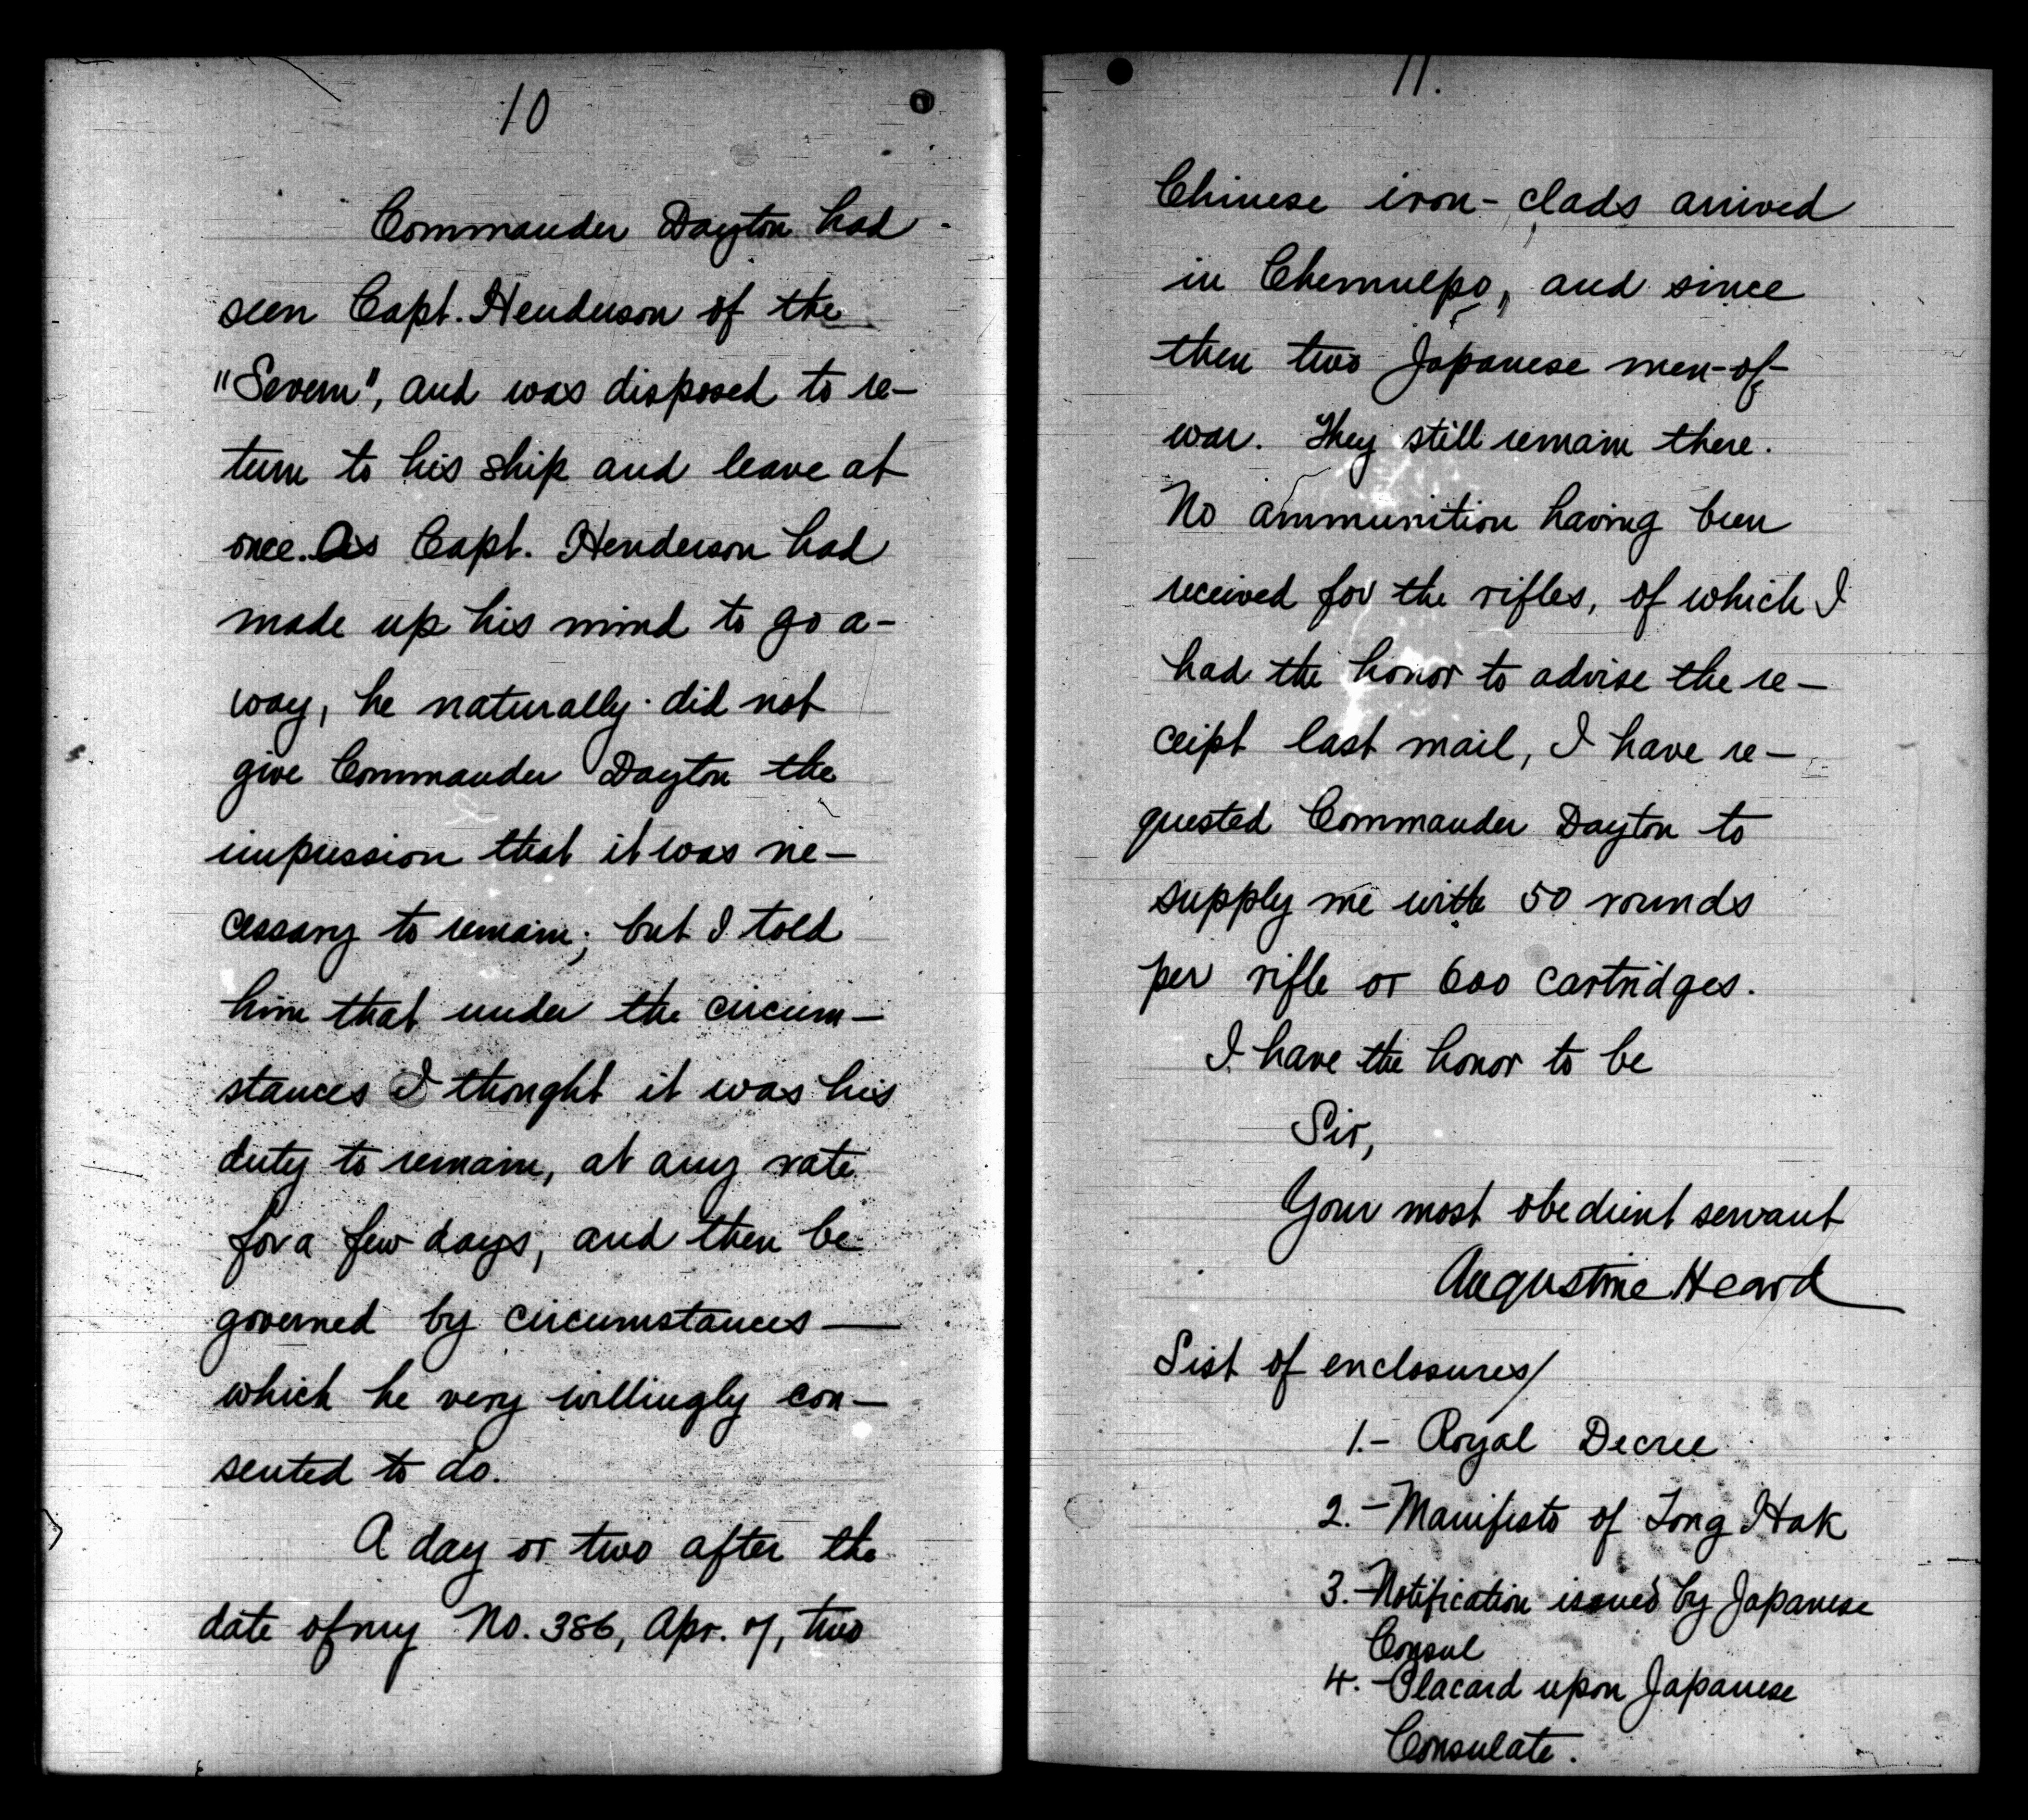 10
Commander Dayton had
seen Capt. Henderson of the
"Severn", and was disposed to re-
turn to his ship and leave at
once. As Capt. Henderson had
made up his mind to go a-
way, he naturally did not
give Commander Dayton the
impression that it was ne-
cessary to remain; but I told
him that under the circum-
stances I thought it was his
duty to remain, at any rate
for a few days, and then be
governed by circumstances —
which he very willingly con-
sented to do.
A day or two after the
date of my No. 386, Apr. 7, two
11.
Chinese iron-clads arrived
in Chemulpo, and since
then two Japanese men-of-
war. They still remain there.
No ammunition having been
received for the rifles, of which I
had the honor to advise the re-
ceipt last mail, I have re-
quested Commander Dayton to
supply me with 50 rounds
per rifle or 600 cartridges.
I have the honor to be
Sir,
Your most obedient servant
Augustine Heard
List of enclosures/
1.- Royal Decree
2.- Manifesto of Tong Hak
3.- Notification issued by Japanese
Consul
4.- Placard upon Japanese
Consulate.